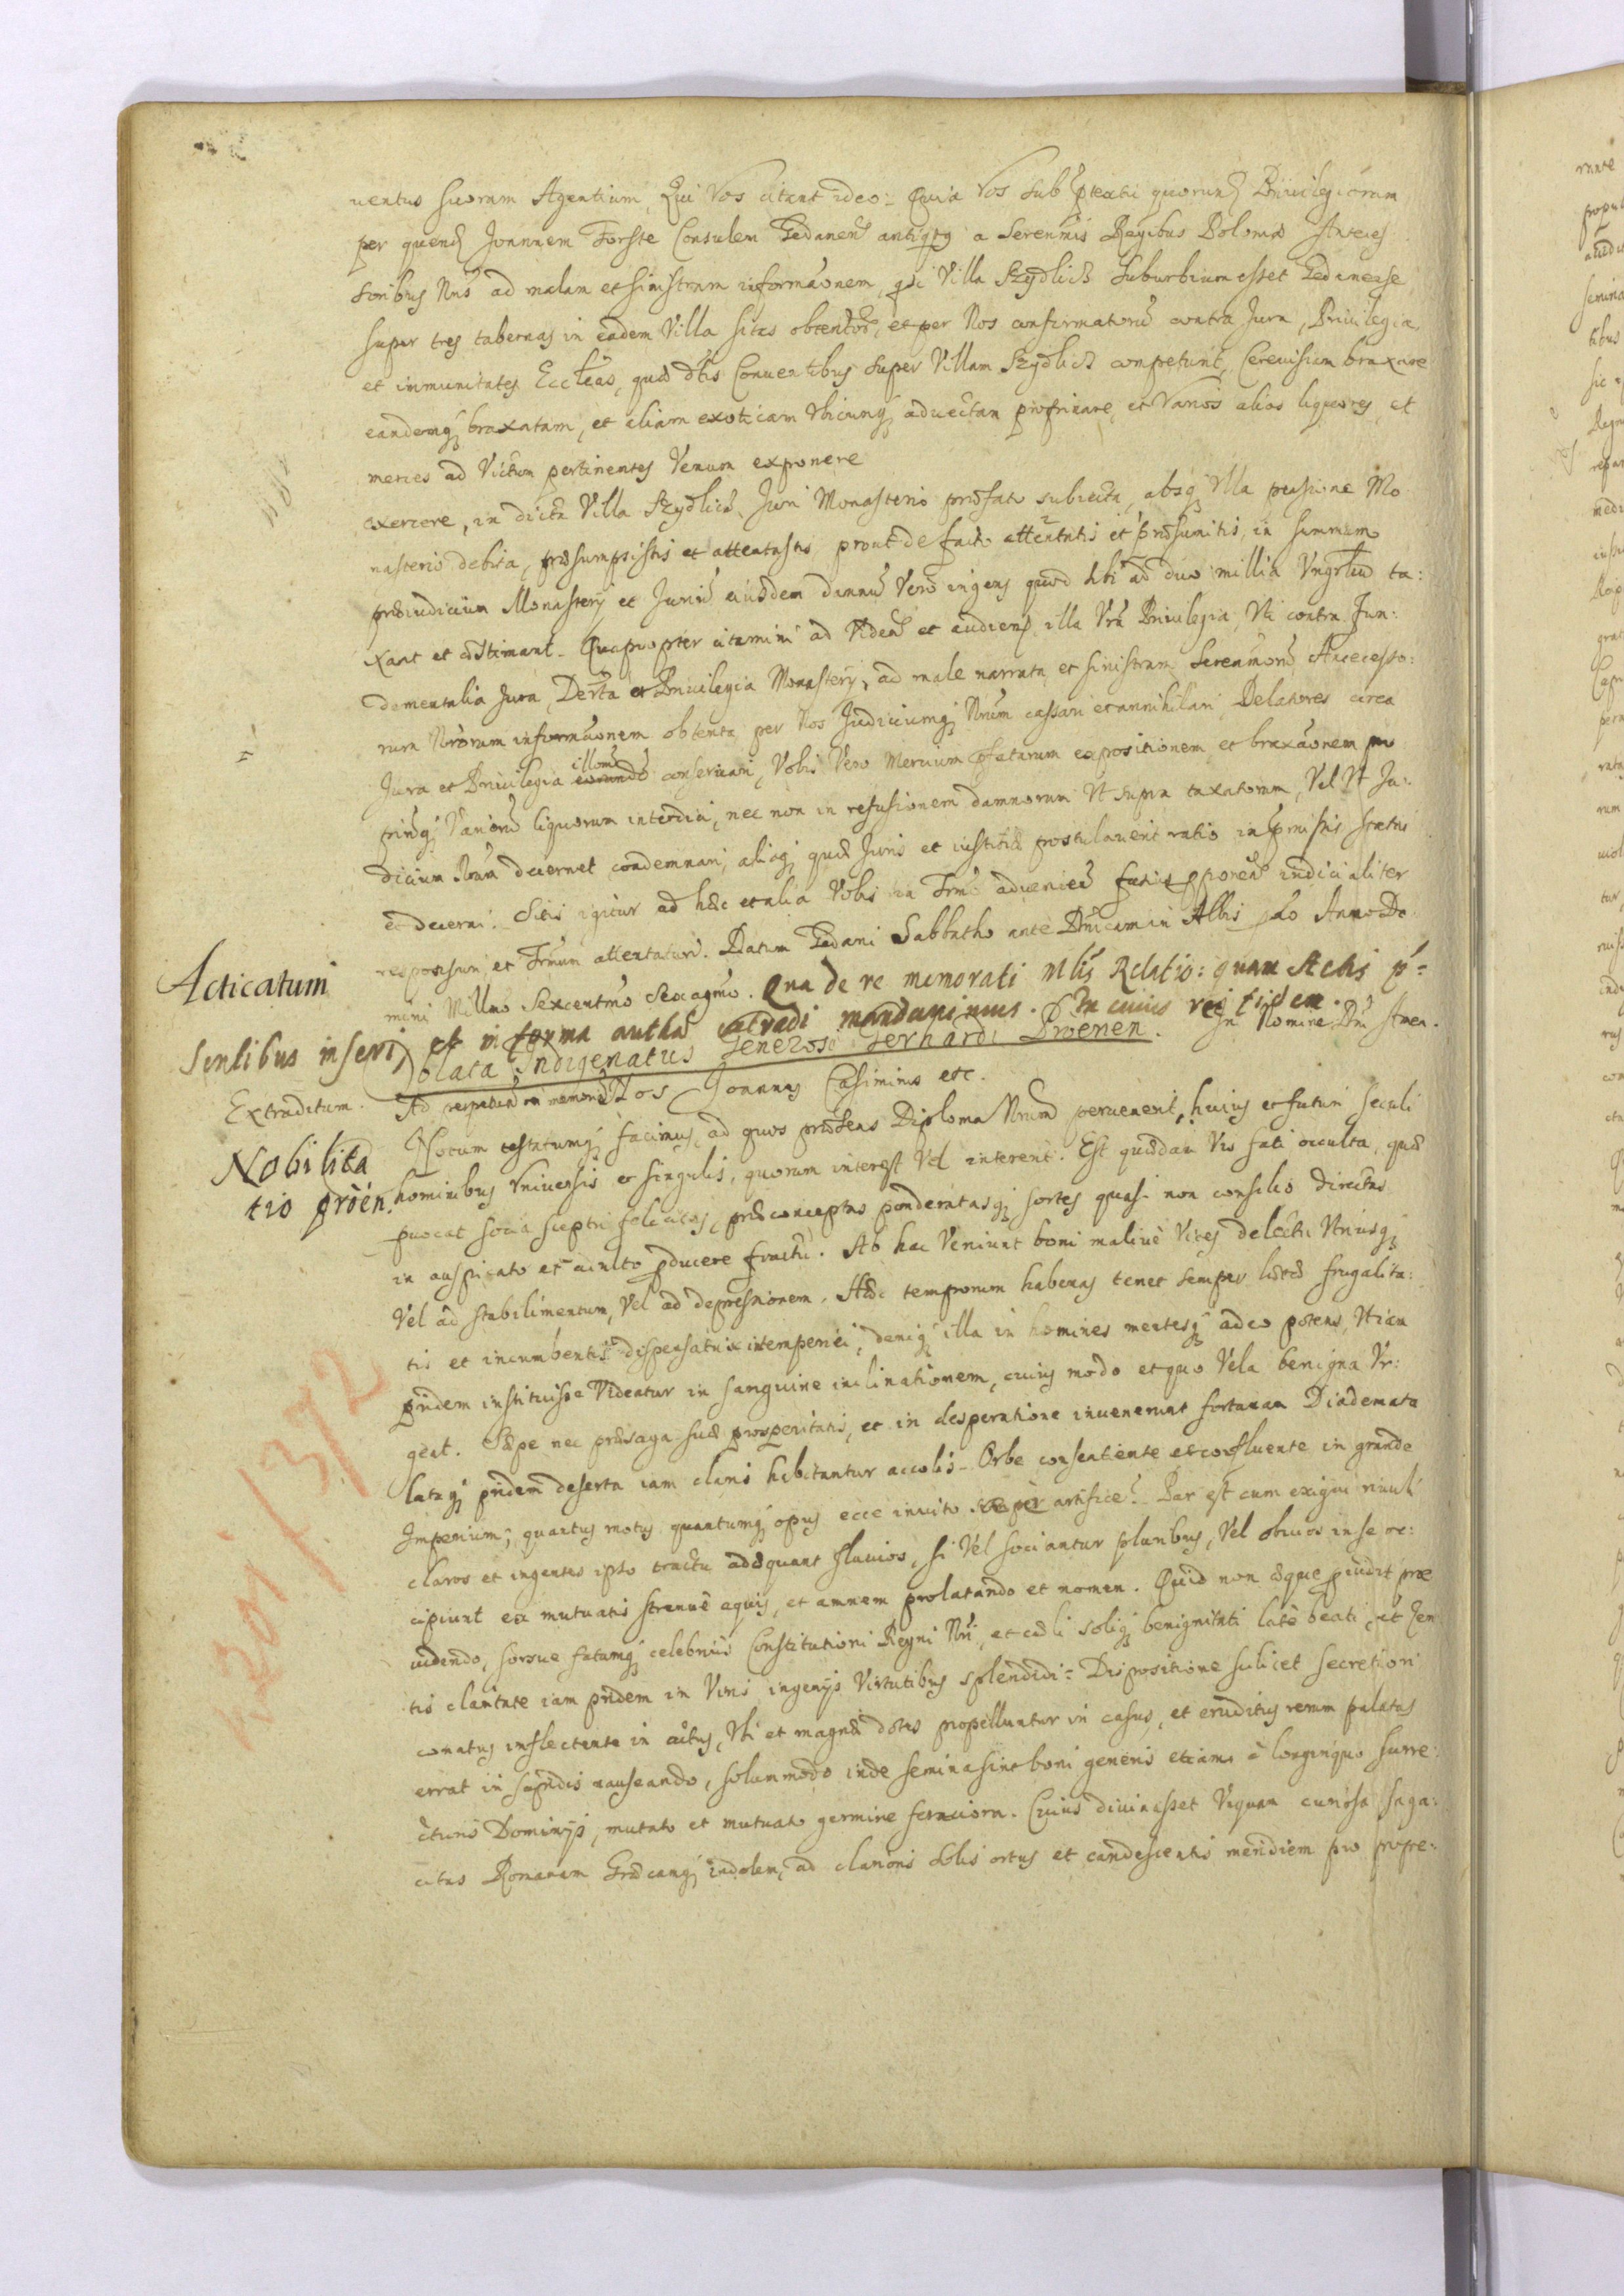 uentus suorum Agentium, Qui Vos citant ideo: Quia Vos sub ptextu quorund Priuilegiorum
per quend Joannem Forste Consulem Gedanen antiqtg a Serenmis Regibus Poloniæ Anteces
soribus Nris ad malam et sinistram informãonem, qsi Villa Szydlicz Suburbium esset Gedanense
super tres tabernas in eadem Villa sitas obtentor, et per Nos confirmator contra Jura, Priuilegia,
et immunitates Eccleãs, quæ dtis Conuentibus super Villam Szydlicz competunt, Cereuisiam braxare
eandemq braxatam, et aliam exoticam Vbicunq aduectam propinare, et Varios alios liquores, et
merces ad Victum pertinentes Venum exponere
exercere, in dicta Villa Szydlicz, Juri Monasterio præfato subiecta, absq Vlla pensione Mo
nasterio debita, præsumpsistis et attentastis, prout de facto attentatis et præsumitis, in summum
præiudicium Monasterij et Juriũ eiusdem damnũ Vero ingens quod sibi ad duo millia Vngrlũ ta:
xant et æstimant. Quapropter citamini ad Viden et audien, illa Vra Priuilegia, Vti contra Fun:
damentalia Jura, Decrta et Priuilegia Monasterij, ad male narrata et sinistram Serenmorũ Antecesso:
rum Nrorum informãonem obtenta per Nos Judiciumq Nrum cassari et annihilari, Delatores circa
Jura et Priuilegia illorũ conseruari, Vobis Vero Mercium pfatarum expositionem et braxãonem pro
pinãq Variorũ liquorum interdici, nec non in refusionem damnorum Vt supra taxatorum, Vel Vt Ju:
dicium Nrum decernet condemnari, aliaq quæ Juris et iustitiæ postulauerit ratio in pmissis statui
et decerni. Sitis igitur ad hæc et alia Vobis in Trmo aduenien pponen iudicialiter
responsuri, et Trmum attentaturi. Datum Gedani Sabbatho ante Dnicam in Albis Anno Do
mini Millmo Sexcentmo Sexagmo. Qua de re memorati Mlis Relatio: quam Actis p=
Acticatum
sentibus inseri, et in forma autha extradi mandauimus. In cuius rej fidem.
Oblata Indigenatus Generosi Gerhardi Proenen.
In Nomine Dni Amen.
Extraditum.
Ad perpetuã rei memoriã Nos Joannes Casimirus etc.
Nobilita
tio proën.
Notum testatumq facimus, ad quos præsens Diploma Nrum peruenerit, huius et futuri seculi
hominibus Vniuersis et singulis, quorum interest Vel intererit. Est quædam Vis fati occulta, quæ
puocat socia sceptri felicitas, præconceptas ponderatasq sortes quasi non consilio directas
in auspicato et aculto pducere fructu. Ab hac Veniunt boni maliuè Vices delectu Vtriusq
Vel ad stabilimentum, Vel ad depressionem. Hæc temporum habenas tenet semper lætæ frugalita:
tis et incumbentis dispensatrix intemperiei, deniq illa in homines mentesq adeo potens, Vt iam
pridem instituisse Videatur in sanguine inclinationem, cuius modo et quo Vela benigna Vr:
geat. Sæpe nec præsaga suæ prosperitatis, et in desperatione inuenerunt fortunam Diademata
lataq pridem deserta iam claris habitantur accolis. Orbe consentiente et confluente in grande
Imperium; quantus motus quantumq opus ecce inuito semper artifice? Par est cum exigui riuuli
claros et ingentes ipso tractu adæquant fluuios, si Vel sociantur pluribus, Vel obuios in se ac:
cipiunt ex mutuatis strenuè aquis, et amnem prolatando et nomen. Quid non æque prudit præ
uidendo, sorsue fatumq celebrius Constitutioni Regni Nri, et cæli soliq benignitati latè beati, et Gen
tis claritate iam pridem in Viris ingenijs Virtutibus splendidi: Dispositione scilicet secretiori
conatus inflectente in actus, Vbi et magnæ dotes propelluntur in casus, et eruditus rerum palatus
errat in sapidis nauseando, solummodo inde semina sint boni generis etiam è longinquo surre:
cturis Dominijs, mutato et mutuato germine feraciora. Cuius diuinasset Vnquam curiosa saga:
citas Romanam Græcamq indolem, ad clarioris solis ortus et candescentis meridiem pro prope:
300/372